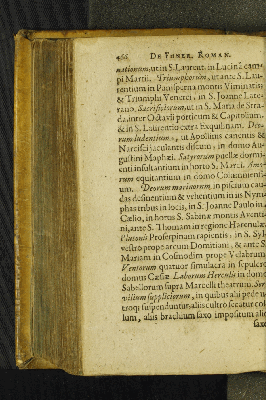 466 DE FVNER. ROMAN.
nationum, ut in S. Laurent. in Lucina cam-
pi Martii. Triumphorum, ut ante S. Lau-
rentium in Panisperna montis Viminatis:
& Triumphi Venerei, in S. Joanne Late-
rano. Sacrificiorum, ut in S. Maria de Stra-
da, inter Octavii porticum & Capitolium,
& in S. Laurentio extra Exquilinam. Deo-
rum ludentium, ut Apollinis canentis &
Narcisi jaculantis discum, in domo Au-
gustini Maphæi. Satyrorum puellæ dormi-
enti insultantium in horto S. Marci. Amo-
rum equitantium in domo Columnensi-
um. Deorum marinorum in piscium cau-
das desinentium & vehentium in iis Nym-
phas tribus in locis, in S. Joanne Paulo in
Cælio, in hortis S. Sabinæ montis Aventi-
ni, ante S. Thomam in regione Harenulæ.
Plutonis Proserpinam rapientis, in S. Syl-
vestro prope arcum Domitiani, & ante S.
Mariam in Cosmodin prope Velabrum
Ventorum quatuor simulacra in sepulcro
domus Cæsiæ. Laborum Herculis in domo
Sabellorum supra Marcelli theatrum. Ser-
vilium suppliciorum, in quibus alii pede u-
troq; suspenduntur, aliis cultro secatur col-
lum, aliis brachium saxo impositum alio
saxo